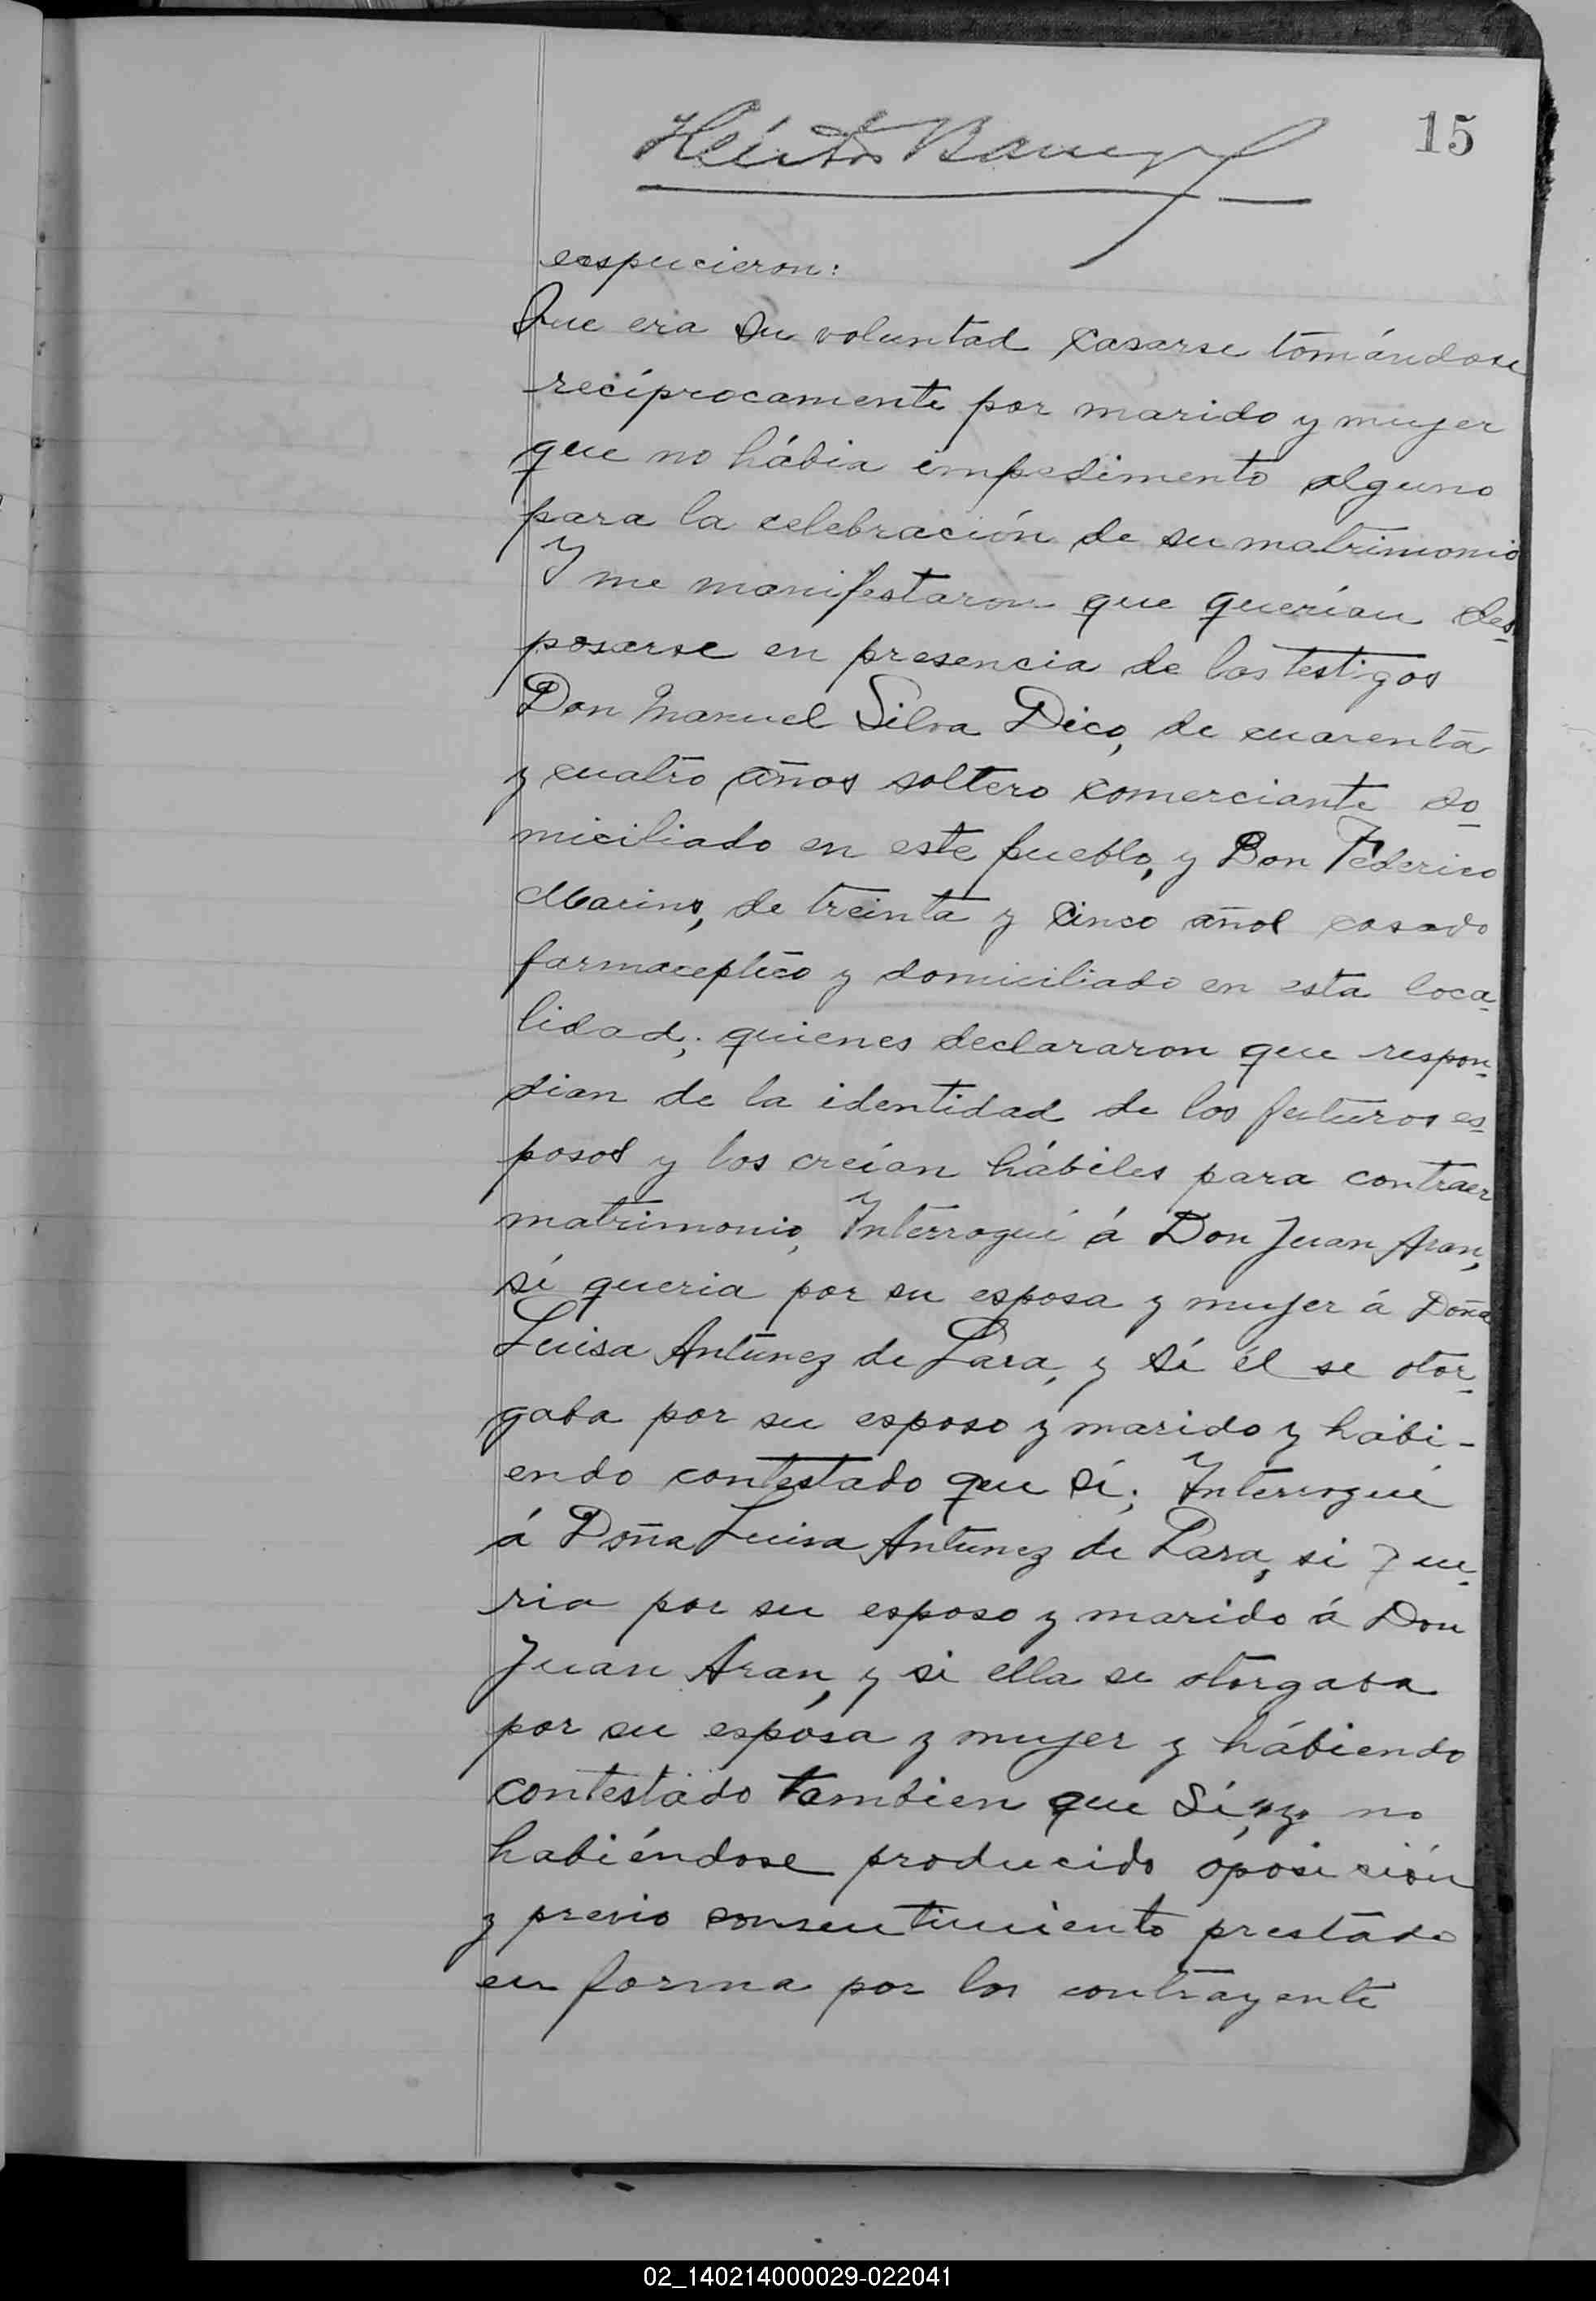 15
Héctor
espucieron:
Que era su voluntad casarse tomándose
recíprocamente por marido y mujer
que no hábia impedimento alguno
para la celebración de su matrimonio
Y me manifestaron que querían des-
posarse en presencia de los testigos
Don Manuel Silva Dico, de cuarenta
y cuatro años soltero comerciante do-
miciliado en este pueblo, y Don Federico
Marino, de treinta y cinco años casado
farmaceptico y domiciliado en esta loca-
lidad; quienes declararon que respon-
dian de la identidad de los futuros es-
posos y los creían hábiles para contraer
matrimonio, Interrogué á Don Juan Aran,
sí queria por su esposa y mujer á Doña
Luisa Antúnez de Lara, y sí él se otor-
gaba por su esposo y marido y hábi-
endo contestado que sí; Interrogué
á Doña Luisa Antunez de Lara, si que-
ria por su esposo y marido á Don
Juan Aran, y si ella se otorgaba
por su esposa y mujer y hábiendo
contestado tambien que Sí, y no
habiéndose producido oposición
y previo consentimiento prestado
en forma por los contrayente
02_140214000029-022041